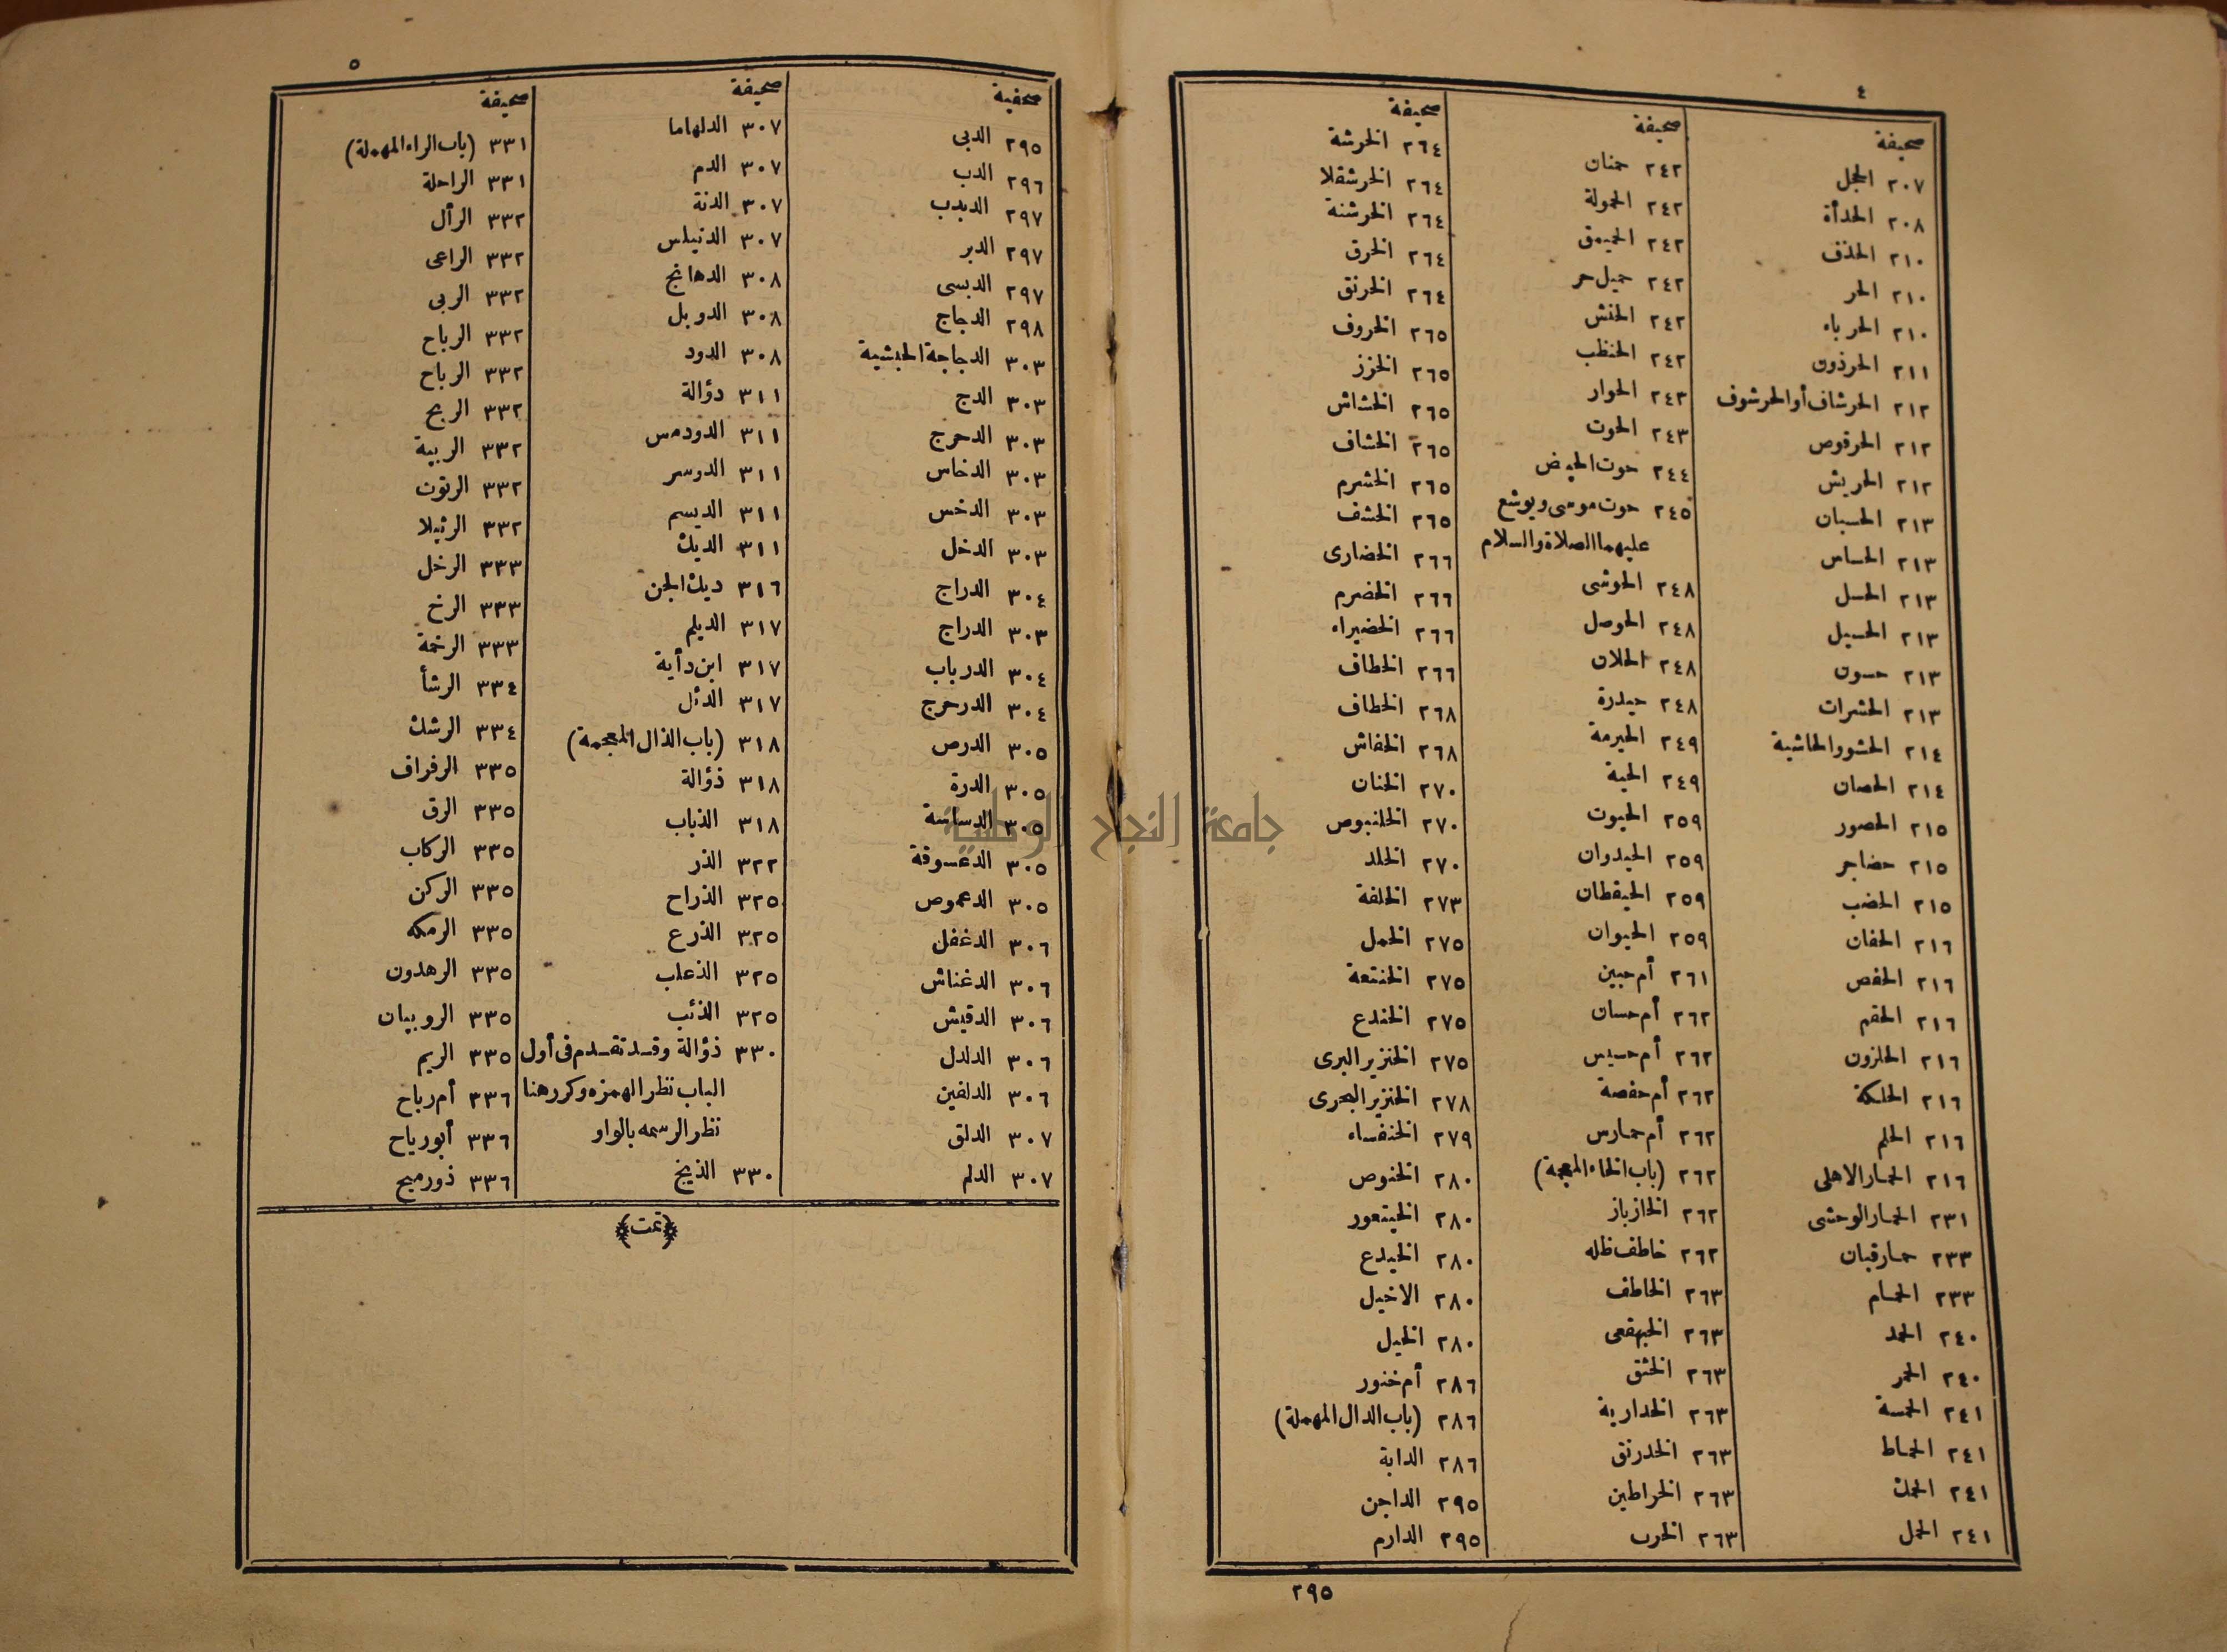 ٤
صحيفة
٢٠٧ الحجل
٢٠٨ الحدأة
٢١٠ الحذف
٢١٠ الحر
٢١٠ الحرباء
٢١١ الحرذون
٢١٢ الحرشاف أو الحرشوف
٢١٢ الحرقوص
٢١٢ الحريش
٢١٣ الحسبان
٢١٣ الحساس
٢١٣ الحسل
٢١٣ الحسيل
٢١٣ حسون
٢١٣ الحشرات
٢١٤ الحشو والحاشية
٢١٤ الحصان
٢١٥ الحصور
٢١٥ حضاجر
٢١٥ الحضب
٢١٦ الحفان
٢١٦ الحفص
٢١٦ الحقم
٢١٦ الحلزون
٢١٦ الحلكة
٢١٦ الحلم
٢١٦ الحمار الاهلى
٢٣١ الحمار الوحشى
٢٣٣ حمارقبان
٢٣٣ الحمام
٢٤٠ الحمد
٢٤٠ الحمر
٢٤١ الحمسة
٢٤١ الحماط
٢٤١ الحمك
٢٤١ الحمل
صحيفة
٢٤٢ حمنان
٢٤٢ الحمولة
٢٤٢ الحميمق
٢٤٢ حميل حر
٢٤٢ الحنش
٢٤٢ الحنظب
٢٤٣ الحوار
٢٤٣ الحوت
٢٤٤ حوت الحيض
٢٤٥ حوت موسى ويوشع
عليهما الصلاة والسلام
٢٤٨ الحوشى
٢٤٨ الحوصل
٢٤٨ الحلان
٢٤٨ حيدرة
٢٤٩ الحيرمة
٢٤٩ الحية
٢٥٩ الحيوت
٢٥٩ الحيدوان
٢٥٩ الحيقطان
٢٥٩ الحيوان
٢٦١ أم حبين
٢٦٢ أم حسان
٢٦٢ أم حسيس
٢٦٢ أم حفصة
٢٦٢ أم حمارس
٢٦٢ (باب الخاء المعجمة)
٢٦٢ الخازباز
٢٦٢ خاطف ظله
٢٦٣ الخاطف
٢٦٣ الخبهقعى
٢٦٣ الخثق
٢٦٣ الخدارية
٢٦٣ الخدرنق
٢٦٣ الخراطين
٢٦٣ الخرب
صحيفة
٢٦٤ الخرشة
٢٦٤ الخرشقلا
٢٦٤ الخرشنة
٢٦٤ الخرق
٢٦٤ الخرنق
٢٦٥ الخروف
٢٦٥ الخزز
٢٦٥ الخشاش
٢٦٥ الخشاف
٢٦٥ الخشرم
٢٦٥ الخشف
٢٦٦ الخضارى
٢٦٦ الخضرم
٢٦٦ الخضيراء
٢٦٦ الخطاف
٢٦٨ الخطاف
٢٦٨ الخفاش
٢٧٠ الخنان
٢٧٠ الخلنبوص
٢٧٠ الخلد
٢٧٣ الخلفة
٢٧٥ الخمل
٢٧٥ الخنتعة
٢٧٥ الخندع
٢٧٥ الخنزير البرى
٢٧٨ الخنزير البحرى
٢٧٩ الخنفساء
٢٨٠ الخنوص
٢٨٠ الخيتعور
٢٨٠ الخيدع
٢٨٠ الاخيل
٢٨٠ الخيل
٢٨٦ أم خنور
٢٨٦ (باب الدال المهملة)
٢٨٦ الدابة
٢٩٥ الداجن
٢٩٥ الدارم
٢٩٥
٥
صحفية
٢٩٥ الدبى
٢٩٦ الدب
٢٩٧ الدبدب
٢٩٧ الدبر
٢٩٧ الدبسى
٢٩٨ الدجاج
٣٠٣ الدجاجة الحبشية
٣٠٣ الدج
٣٠٣ الدحرج
٣٠٣ الدخاس
٣٠٣ الدخس
٣٠٣ الدخل
٣٠٤ الدراج
٣٠٣ الدراج
٣٠٤ الدرباب
٣٠٤ الدرحرج
٣٠٥ الدرص
٣٠٥ الدرة
٣٠٥ الدساسة
٣٠٥ الدعسوقة
٣٠٥ الدعموص
٣٠٦ الدغفل
٣٠٦ الدغناش
٣٠٦ الدقيش
٣٠٦ الدلدل
٣٠٦ الدلفين
٣٠٧ الدلق
٣٠٧ الدلم
صحيفة
٣٠٧ الدلهاما
٣٠٧ الدم
٣٠٧ الدنة
٣٠٧ الدنيلس
٣٠٨ الدهانج
٣٠٨ الدوبل
٣٠٨ الدود
٣١١ دؤالة
٣١١ الدودمس
٣١١ الدوسر
٣١١ الديسم
٣١١ الديك
٣١٦ ديك الجن
٣١٧ الديلم
٣١٧ ابن دأية
٣١٧ الدئل
٣١٨ (باب الذال المعجمة)
٣١٨ ذؤالة
٣١٨ الذباب
٣٢٢ الذر
٣٢٥ الذراح
٣٢٥ الذرع
٣٢٥ الذعلب
٣٢٥ الذئب
٣٣٠ ذؤالة وقد تقدم فى أول
الباب نظر الهمزه وكررهنا
نظر الرسمه بالواو
٣٣٠ الذيخ
صحيفة
٣٣١ (باب الراء المهملة)
٣٣١ الراحلة
٣٣٢ الرأل
٣٣٢ الراعى
٣٣٢ الربى
٣٣٢ الرباح
٣٣٢ الرباح
٣٣٢ الربح
٣٣٢ الربية
٣٣٢ الرتوت
٣٣٢ الرثيلا
٣٣٣ الرخل
٣٣٣ الرخ
٣٣٣ الرخمة
٣٣٤ الرشأ
٣٣٤ الرشك
٣٣٥ الرفراف
٣٣٥ الرق
٣٣٥ الركاب
٣٣٥ الركن
٣٣٥ الرمكه
٣٣٥ الرهدون
٣٣٥ الروبيان
٣٣٥ الريم
٣٣٦ أم رباح
٣٣٦ أبو رياح
٣٣٦ ذورميح
(تمت)
جامعة النجاح الوطنية